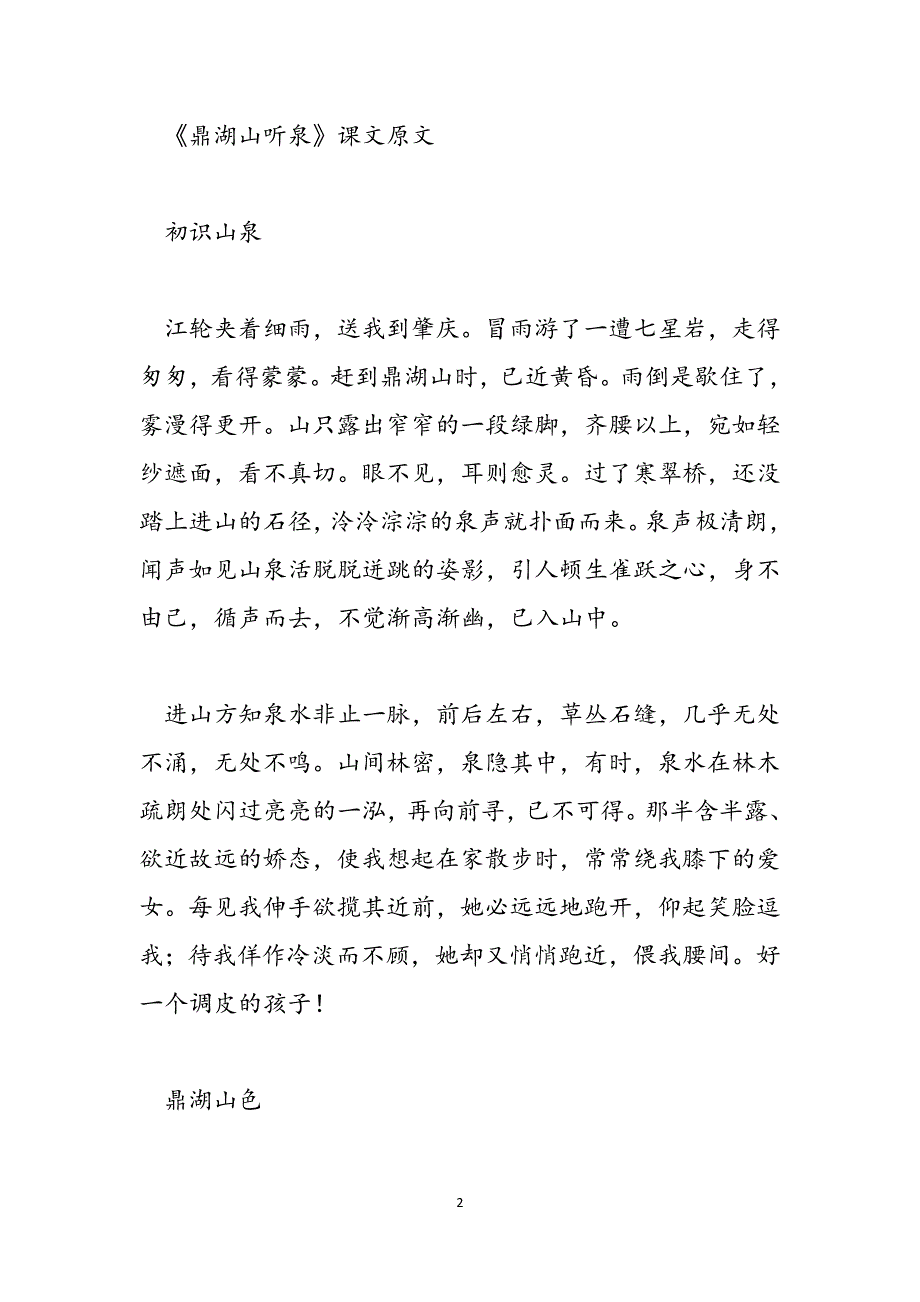 《鼎湖山听泉》课文原文
初识山泉
江轮夹着细雨，送我到肇庆。冒雨游了一遭七星岩，走得
匆匆，看得蒙蒙。赶到鼎湖山时，已近黄昏。雨倒是歇住了，
雾漫得更开。山只露出窄窄的一段绿脚，齐腰以上，宛如轻
纱遮面，看不真切。眼不见，耳则愈灵。过了寒翠桥，还没
踏上进山的石径，泠泠淙淙的泉声就扑面而来。泉声极清朗，
闻声如见山泉活脱脱迸跳的姿影，引人顿生雀跃之心，身不
由己，循声而去，不觉渐高渐幽，已入山中。
进山方知泉水非止一脉，前后左右，草丛石缝，几乎无处
不涌，无处不鸣。山间林密，泉隐其中，有时，泉水在林木
疏朗处闪过亮亮的一泓，再向前寻，已不可得。那半含半露、
欲近故远的娇态，使我想起在家散步时，常常绕我膝下的爱
女。每见我伸手欲揽其近前，她必远远地跑开，仰起笑脸逗
我；待我佯作冷淡而不顾，她却又悄悄跑近，偎我腰间。好
一个调皮的孩子！
鼎湖山色
2